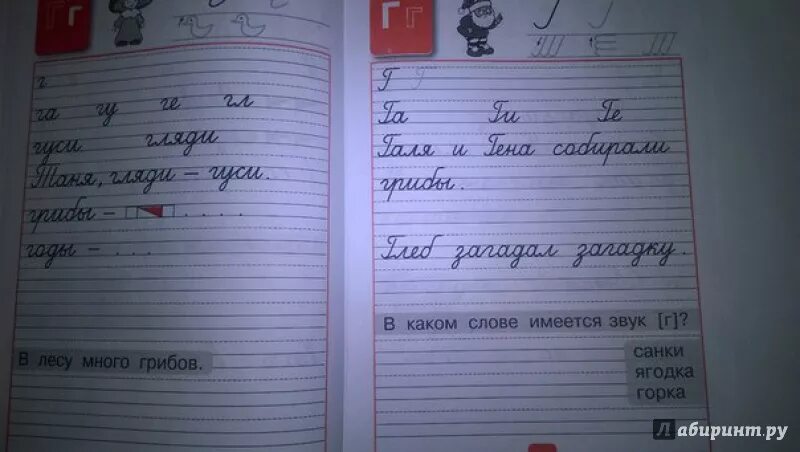 Г г
г
га гу ге гл
гуси гляди
Таня, гляди – гуси.
грибы – . . . .
годы – . . .
В лесу много грибов.
Г г
Г Г
Га Ги Ге
Галя и Гена собирали
грибы.
Глеб загадал загадку.
В каком слове имеется звук [г]?
санки
ягодка
горка
Лабиринт.ру